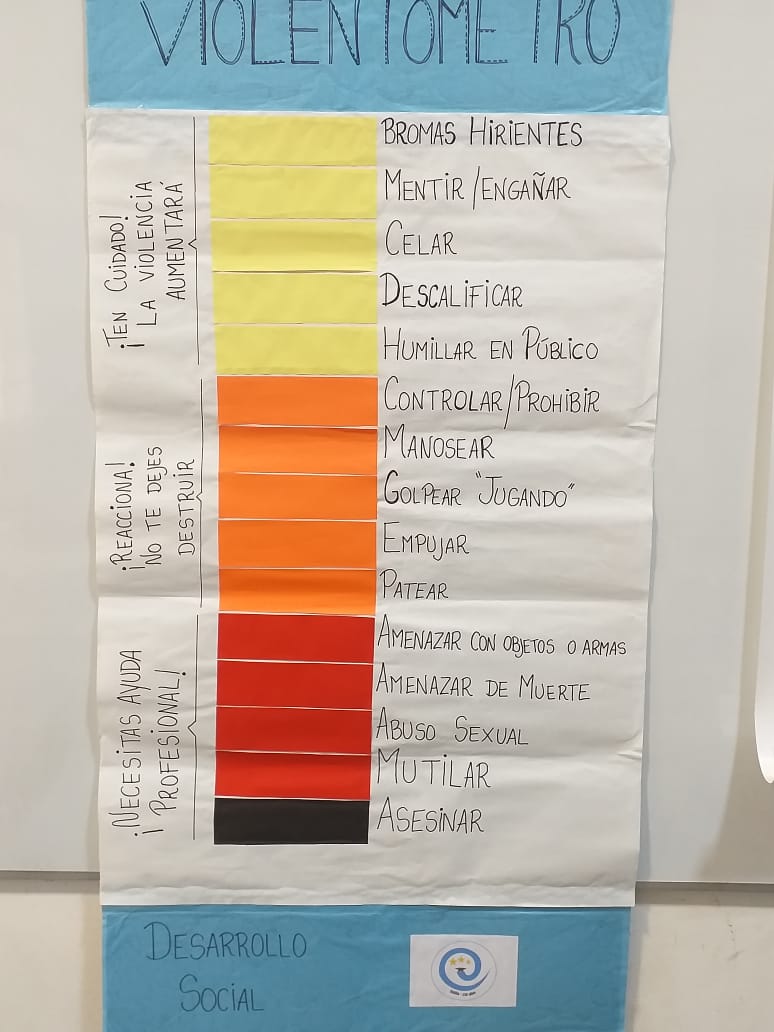 VIOLENTOMETRO
¡TEN CUIDADO!
LA VIOLENCIA
AUMENTARÁ
BROMAS HIRIENTES
MENTIR/ENGAÑAR
CELAR
DESCALIFICAR
HUMILLAR EN PÚBLICO
¡REACCIONA!
NO TE DEJES
DESTRUIR
CONTROLAR/PROHIBIR
MANOSEAR
GOLPEAR "JUGANDO"
EMPUJAR
PATEAR
¡NECESITAS AYUDA
¡PROFESIONAL!
AMENAZAR CON OBJETOS O ARMAS
AMENAZAR DE MUERTE
ABUSO SEXUAL
MUTILAR
ASESINAR
DESARROLLO
SOCIAL